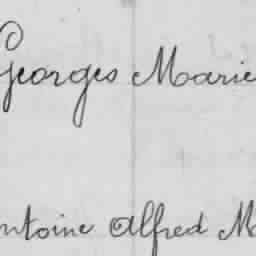 Georges Marie
ntoine Alfred M